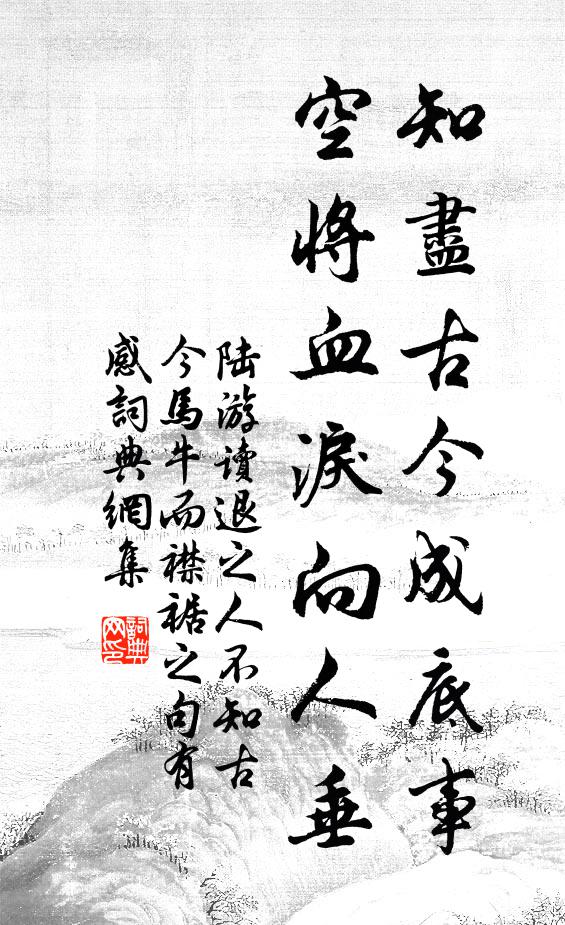 知盡古今成底事
空將血淚向人垂
陆游讀退之人不知古
今馬牛而襟裾之句有
感詞典網集
詞典
网印